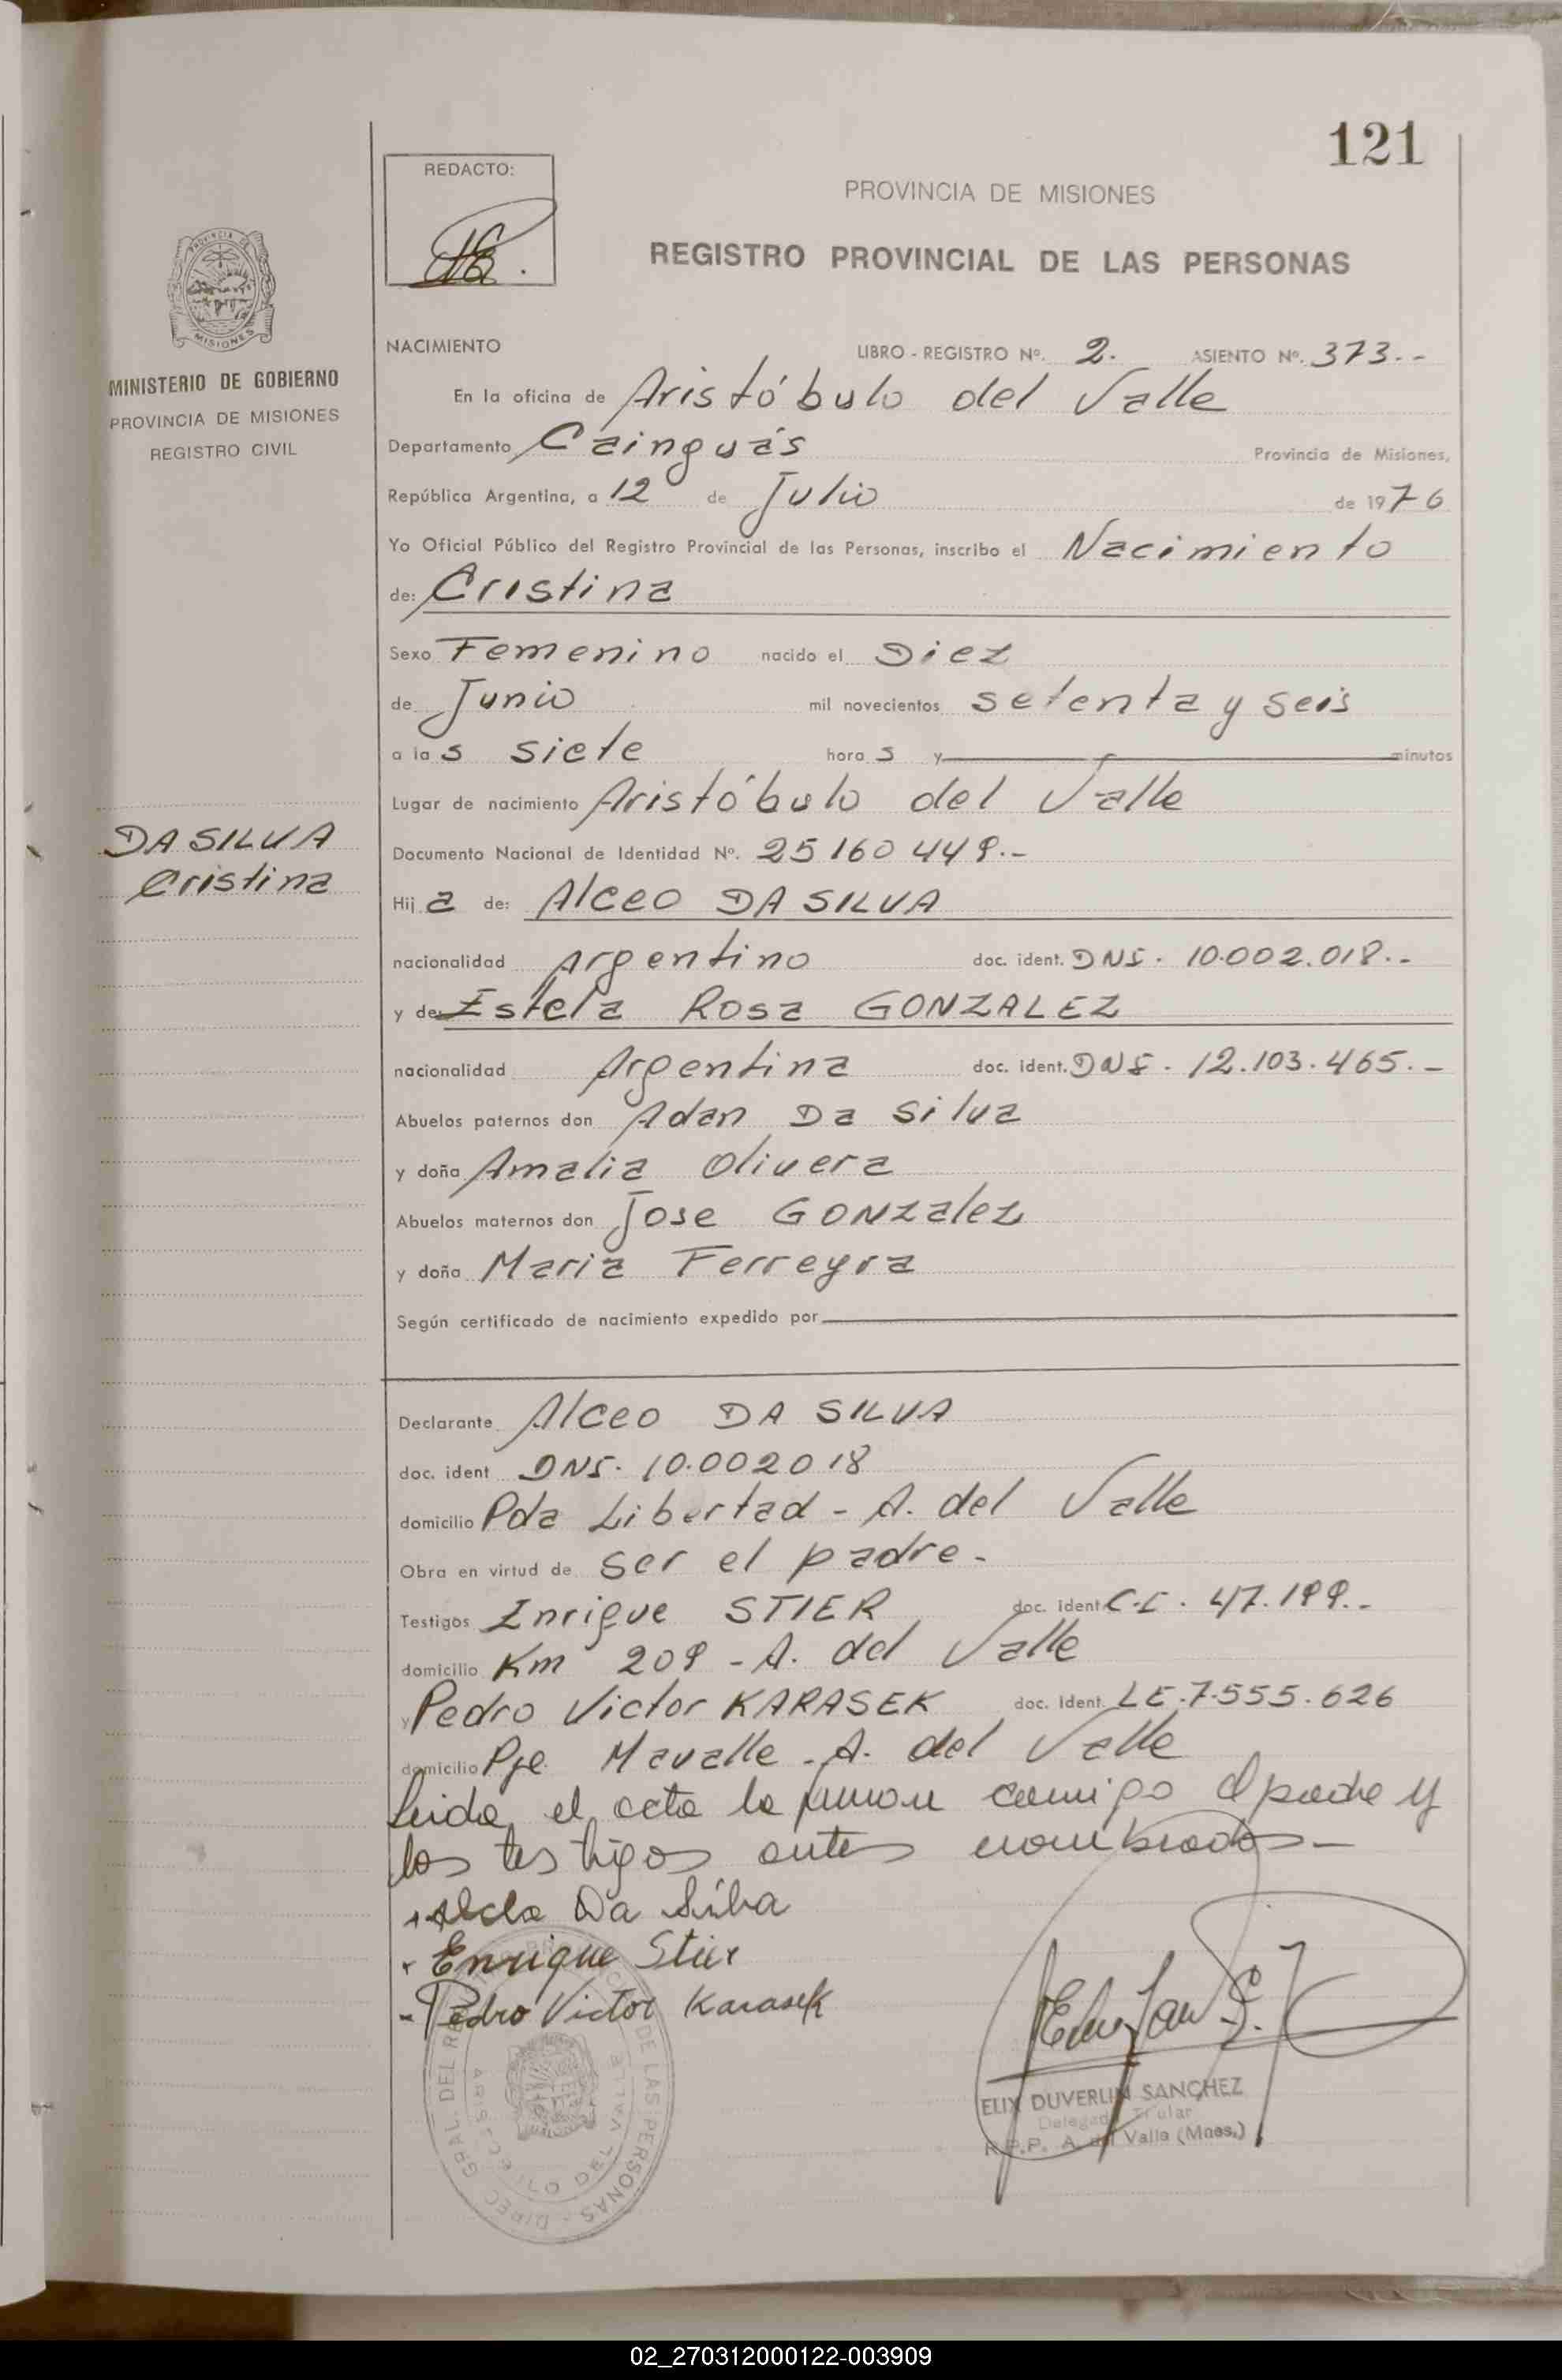 121
REDACTO:
PROVINCIA DE MISIONES
REGISTRO PROVINCIAL DE LAS PERSONAS
MISIONES
MINISTERIO DE GOBIERNO
PROVINCIA DE MISIONES
REGISTRO CIVIL
NACIMIENTO LIBRO - REGISTRO Nº. 2. ASIENTO Nº. 373.--
En la oficina de Aristóbulo del Valle
Departamento Cainguás Provincia de Misiones,
República Argentina, a 12 de Julio de 1976
Yo Oficial Público del Registro Provincial de las Personas, inscribo el Nacimiento
de: Cristina
Sexo Femenino nacido el Diez
de Junio mil novecientos setenta y seis
a las siete horas y minutos
Lugar de nacimiento Aristóbulo del Valle
DA SILVA
Cristina
Documento Nacional de Identidad Nº. 25160449.--
Hija de: Alceo DA SILVA
nacionalidad Argentino doc. ident. DNI. 10.002.018.--
y de: Estela Rosa GONZALEZ
nacionalidad Argentina doc. ident. DNI. 12.103.465.-
Abuelos paternos don Adan Da Silva
y doña Amalia Olivera
Abuelos maternos don Jose GONzalez
y doña Maria Ferreyra
Según certificado de nacimiento expedido por
Declarante Alceo DA SILVA
doc. ident DNI. 10.002018
domicilio Pda Libertad - A. del Valle
Obra en virtud de ser el padre-
Testigos Enrique STIER doc. ident C.I. 47.199.--
domicilio Km 209 - A. del Valle
y Pedro Victor KARASEK doc. Ident. LE.7.555.626
domicilio Pje. Mavalle - A. del Valle
Leida el acta la firman conmigo el padre y
los testigos antes nombrados-
Da Silva
Enrique Stier
Pedro Victor Karasek
ELIX DUVERLIN SANCHEZ
Delegado Titular
R.P.P. A. del Valle (Mnes.)
DE LAS PERSONAS - DIREC. GRAL. DEL
ARISTOBULO DEL VALLE
02_270312000122-003909